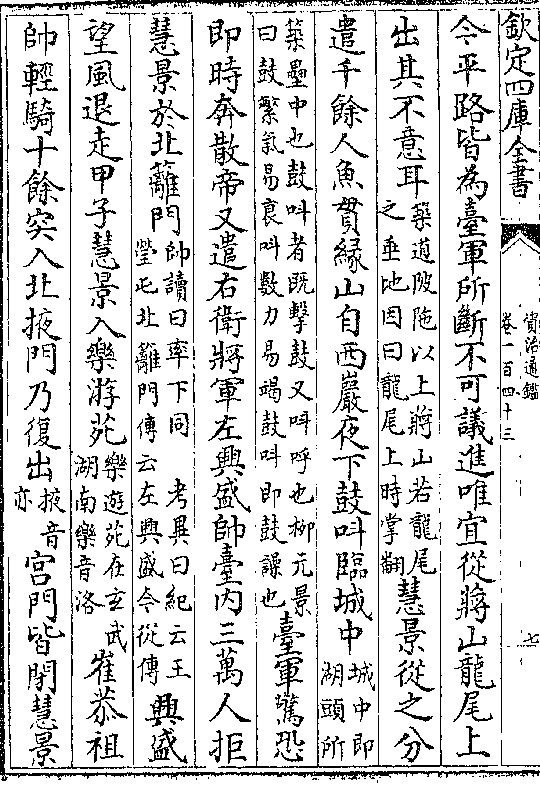 欽定四庫全書
資治通鑑
卷一百四十三
七
今平路皆為臺軍所斷不可議進唯宜從蔣山龍尾上
出其不意耳築道陂陁以上蔣山若龍尾之垂地因曰龍尾上時掌翻慧景從之分
遣千餘人魚貫緣山自西巖夜下鼓叫臨城中城中即湖頭所
築壘中也鼓叫者既擊鼓又叫呼也柳元景曰鼓繁氣易衰叫數力易竭鼓叫即鼓譟也臺軍驚恐
即時奔散帝又遣右衛將軍左興盛帥臺內三萬人拒
慧景於北籬門帥讀曰率下同 考異曰紀云王瑩屯北籬門傳云左興盛今從傳興盛
望風退走甲子慧景入樂游苑樂遊苑在玄武湖南樂音洛崔恭祖
帥輕騎十餘突入北掖門乃復出掖音亦宮門皆閉慧景